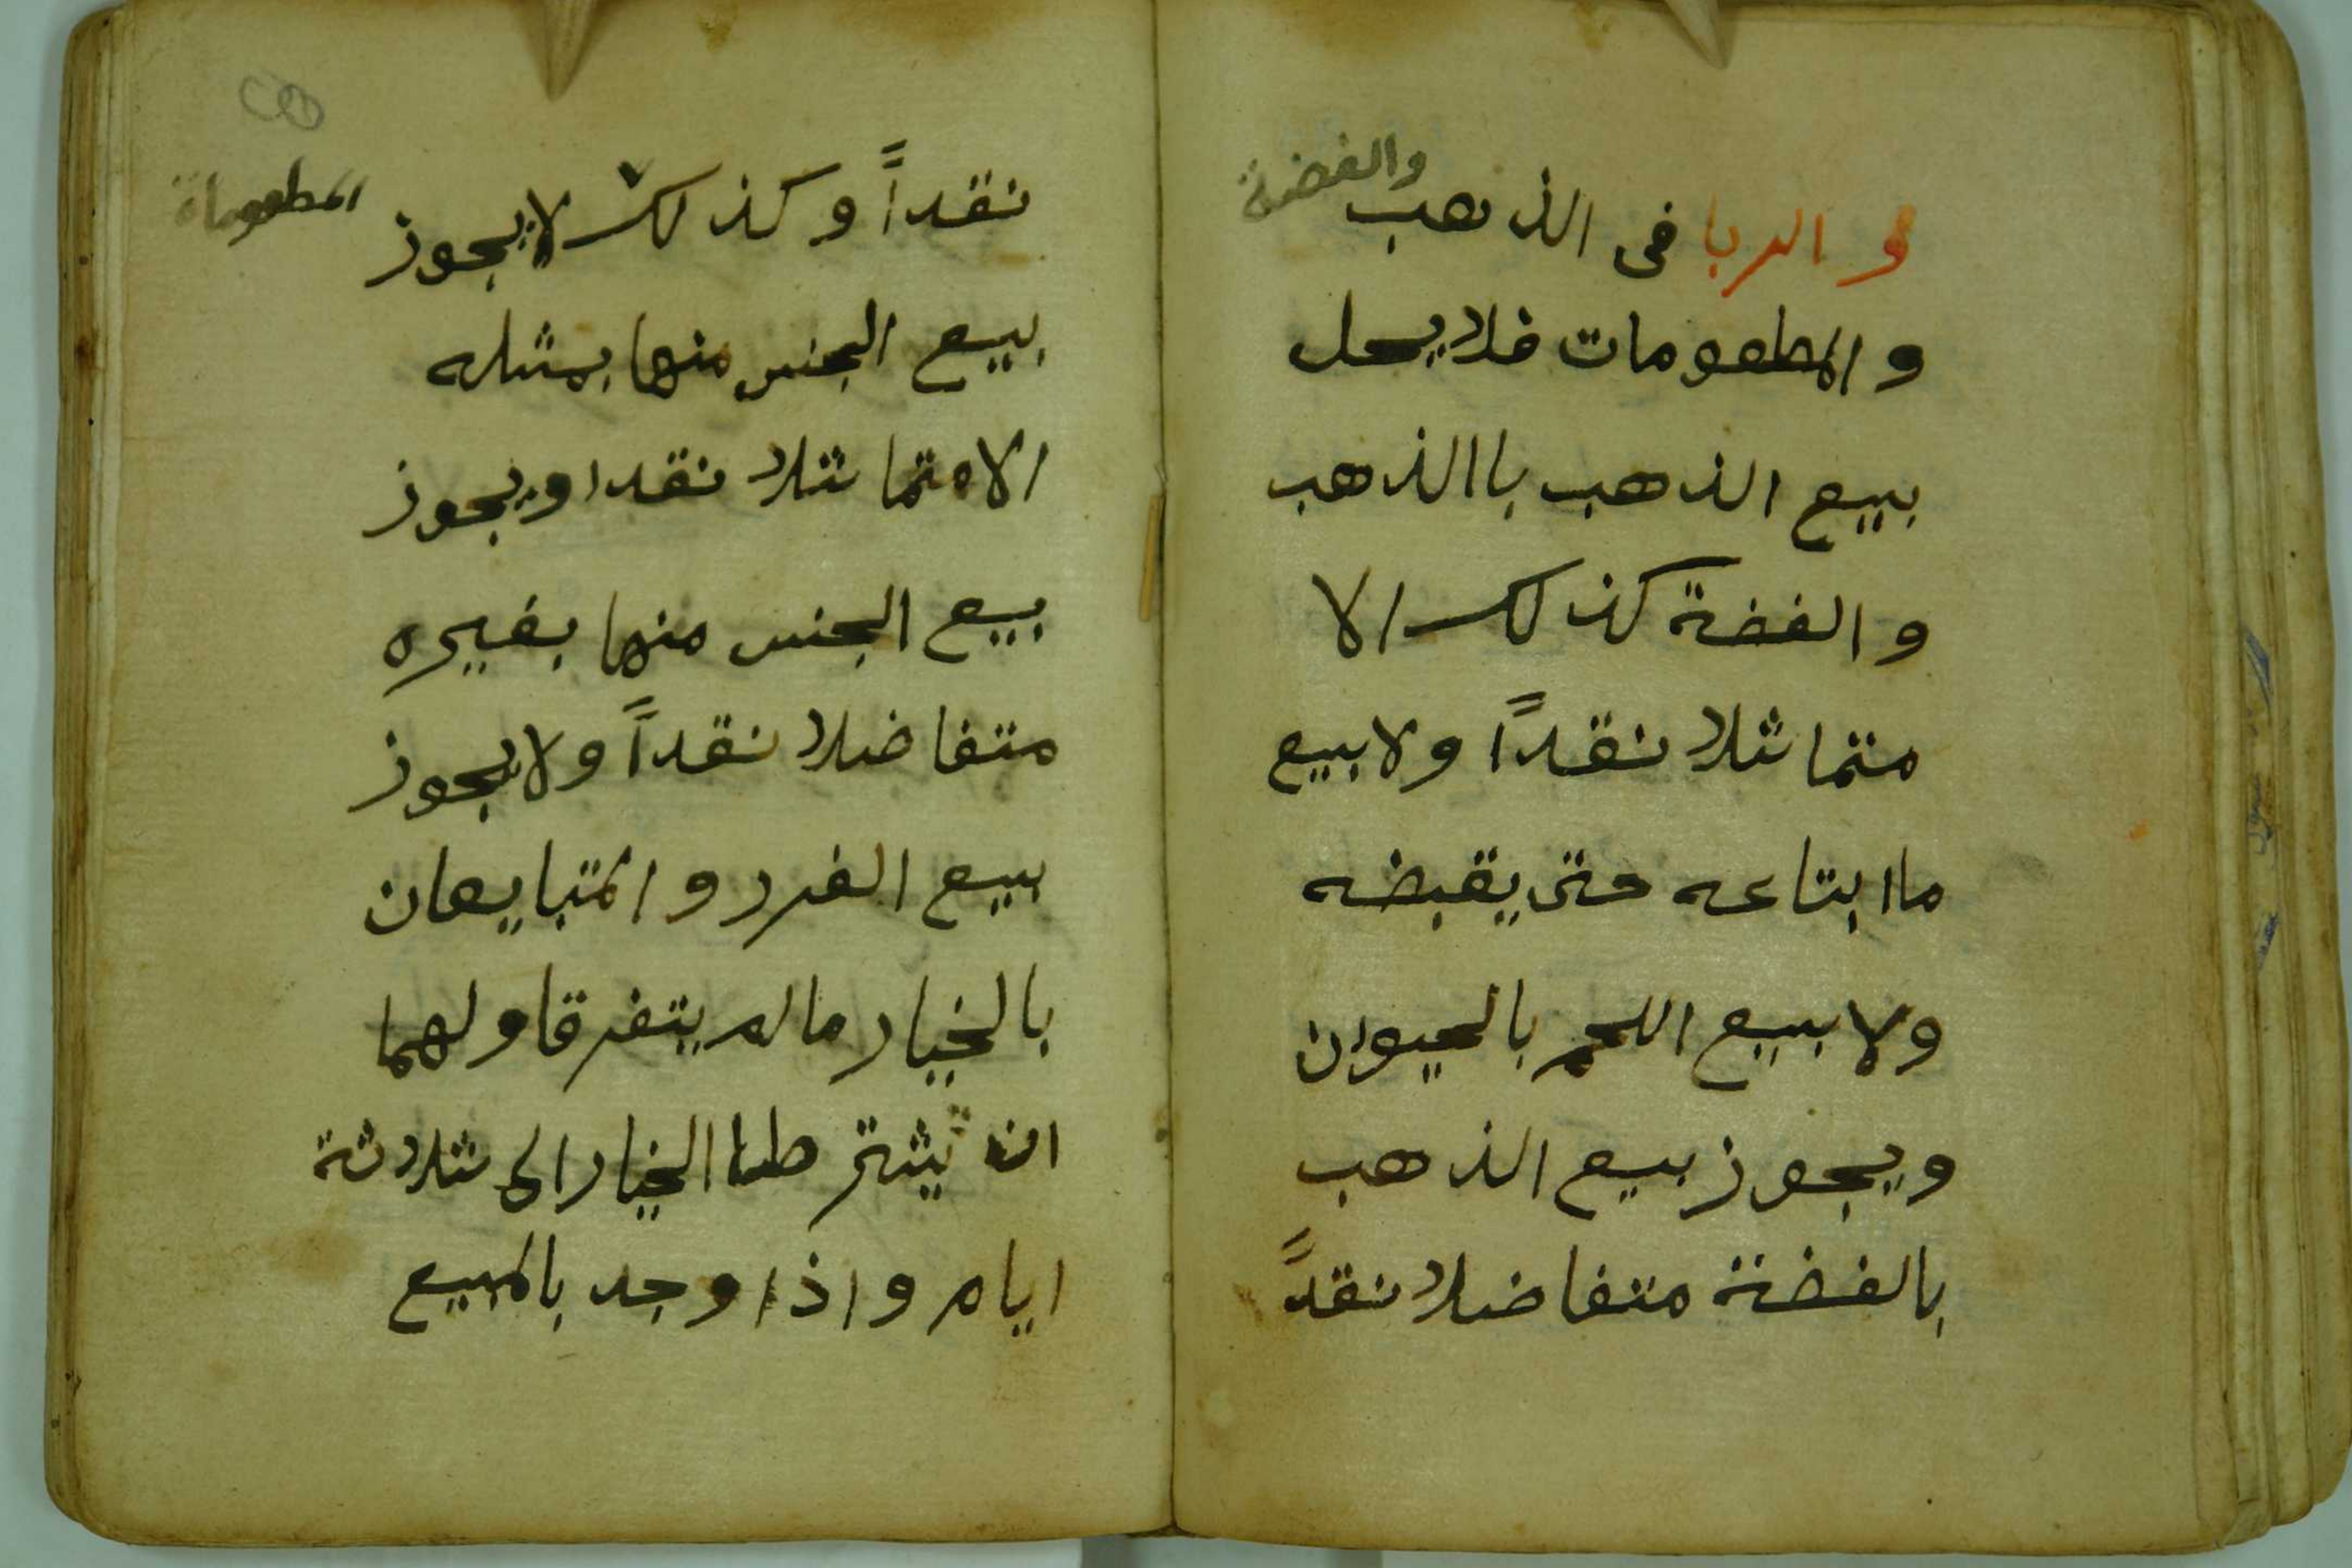 والربا فى الذهب والفضة
والمطعومات فلا يحل
بيع الذهب باالذهب
والفضة كذلك الا
متماثلا نقداً ولا بيع
ما ابتاعه حتى يقبضه
ولا بيع اللحم بالحيوان
ويجوز بيع الذهب
بالفضة متفاضلا نقدً
نقداً وكذلك لا يجوز
المطعوماة
بيع الجنس منها بمثله
الا متماثلا نقدا ويجوز
بيع الجنس منها بغيره
متفاضلا نقداً ولا يجوز
بيع الغرر والمتبايعان
بالخيار ما لم يتفرقا ولهما
ان يشترطا الخيار الى ثلاثة
ايام واذا وجد بالمبيع